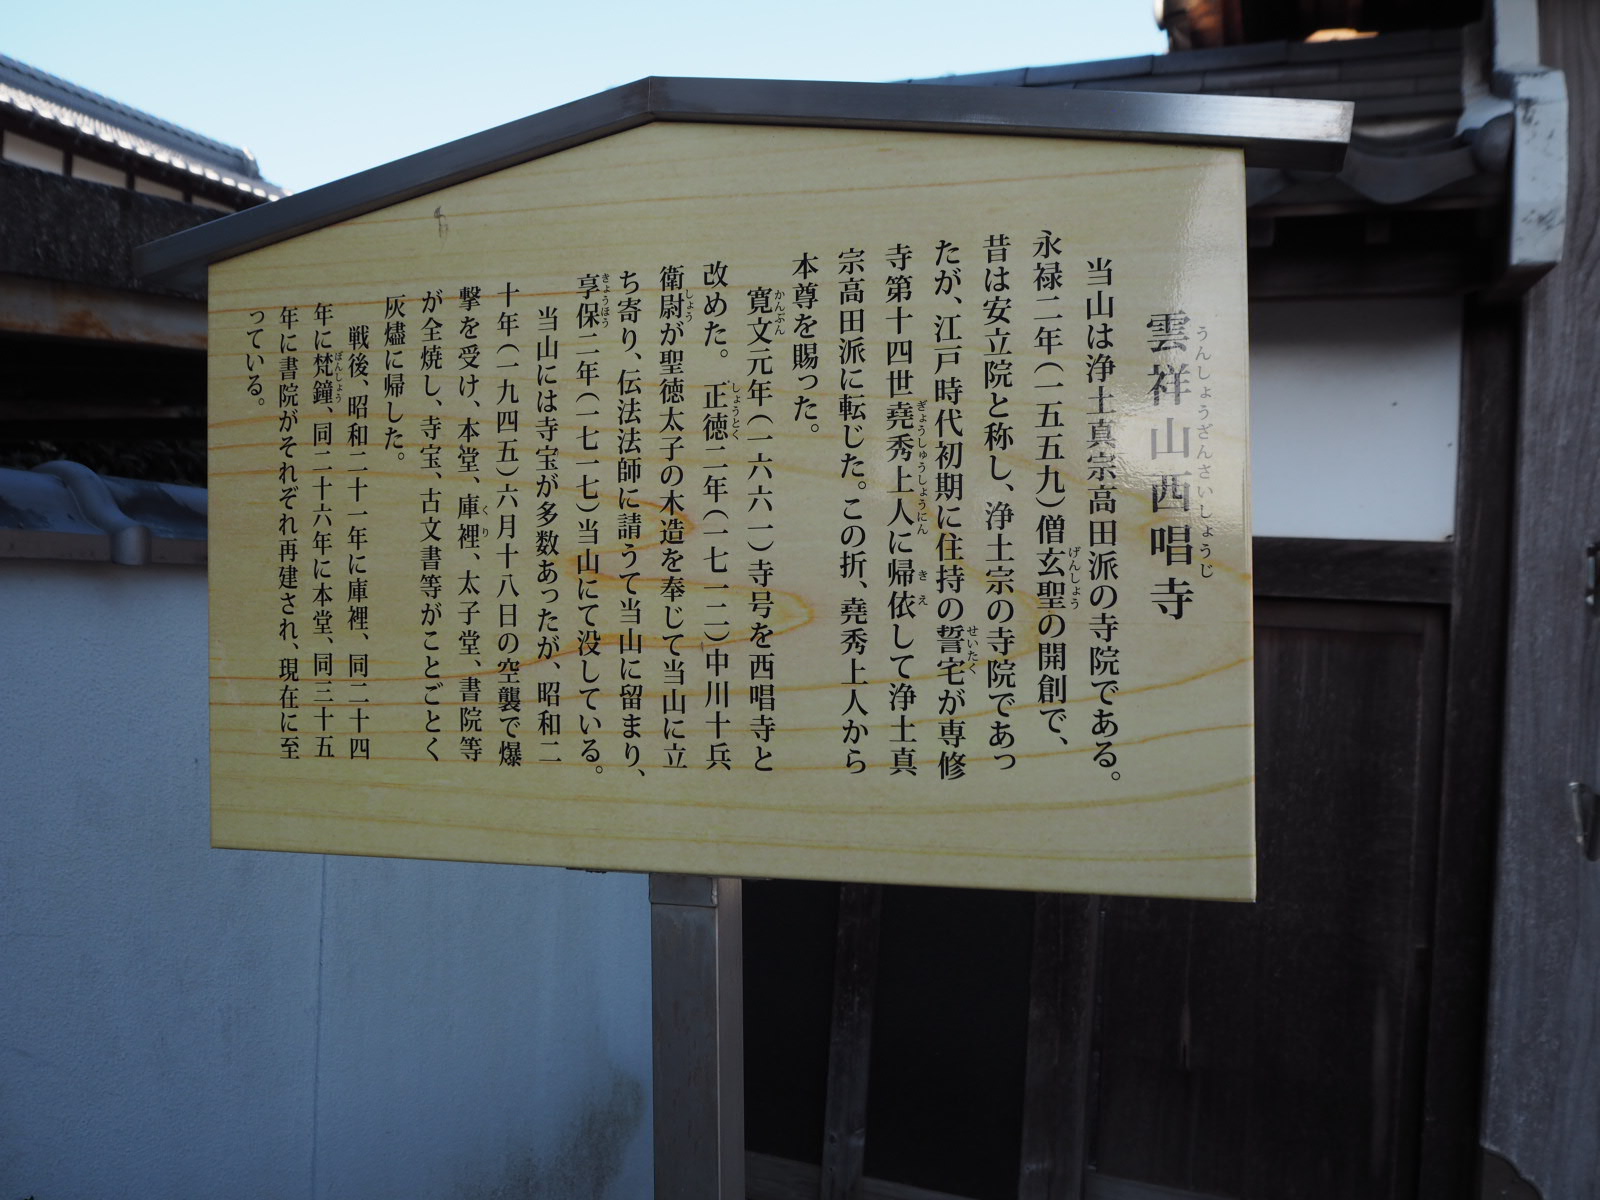 雲祥山西唱寺
うんしょうざんさいしょうじ
当山は浄土真宗高田派の寺院である。
永禄二年(一五五九)僧玄聖の開創で、
げんしょう
昔は安立院と称し、浄土宗の寺院であっ
たが、江戸時代初期に住持の誓宅が専修
せいたく
寺第十四世堯秀上人に帰依して浄土真
ぎょうしゅうしょうにん
きえ
宗高田派に転じた。この折、堯秀上人から
本尊を賜った。
寛文元年(一六六一)寺号を西唱寺と
かんぶん
改めた。正徳二年(一七一二)中川十兵
しょうとく
衛尉が聖徳太子の木造を奉じて当山に立
しょう
ち寄り、伝法法師に請うて当山に留まり、
享保二年(一七一七)当山にて没している。
きょうほう
当山には寺宝が多数あったが、昭和二
十年(一九四五)六月十八日の空襲で爆
撃を受け、本堂、庫裡、太子堂、書院等
くり
が全焼し、寺宝、古文書等がことごとく
灰燼に帰した。
戦後、昭和二十一年に庫裡、同二十四
年に梵鐘、同二十六年に本堂、同三十五
ぼんしょう
年に書院がそれぞれ再建され、現在に至
っている。